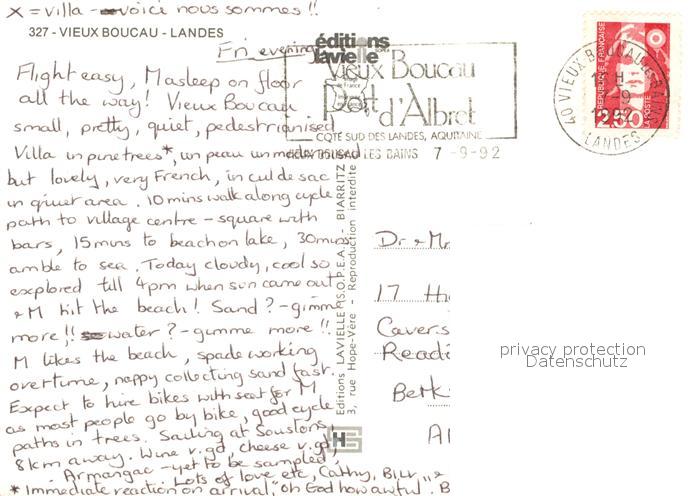 x = villa - voici nous sommes !!
327 - VIEUX BOUCAU - LANDES
Fri evening
Flight easy, M asleep on floor
all the way! Vieux Boucau
small, pretty, quiet, pedestrianised
Villa in pinetrees*, un peu un
but lovely, very French, in cul de sac
in quiet area. 10 mins walk along cycle
path to village centre - square with
bars, 15 mins to beach on lake, 30 mins
amble to sea. Today cloudy, cool so
explored till 4pm when sun came out
& M hit the beach! Sand? - gimme
more!! water? - gimme more!!
M likes the beach, spade working
overtime, nappy collecting sand fast.
Expect to hire bikes with seat for M
as most people go by bike, good cycle
paths in trees. Sailing at Soustons
8km away. Wine v.gd, cheese v.gd,
Armangac - yet to be sampled!
Lots of love etc, Cathy, Bill &
* Immediate reaction on arrival, "oh God how awful". B
éditions
lavielle
Vieux Boucau
Port d'Albret
COTE SUD DES LANDES, AQUITAINE
LES BAINS 7 - 9 - 92
40 VIEUX BOUCAU LES BAINS
LANDES
REPUBLIQUE FRANÇAISE
2,50
LA POSTE
Editions LAVIELLE (S.O.P.E.A.) - BIARRITZ
3, rue Hope-Vère - Reproduction interdite
Dr & Mr
17 H
Cavers
Readi
Berk
privacy protection
Datenschutz